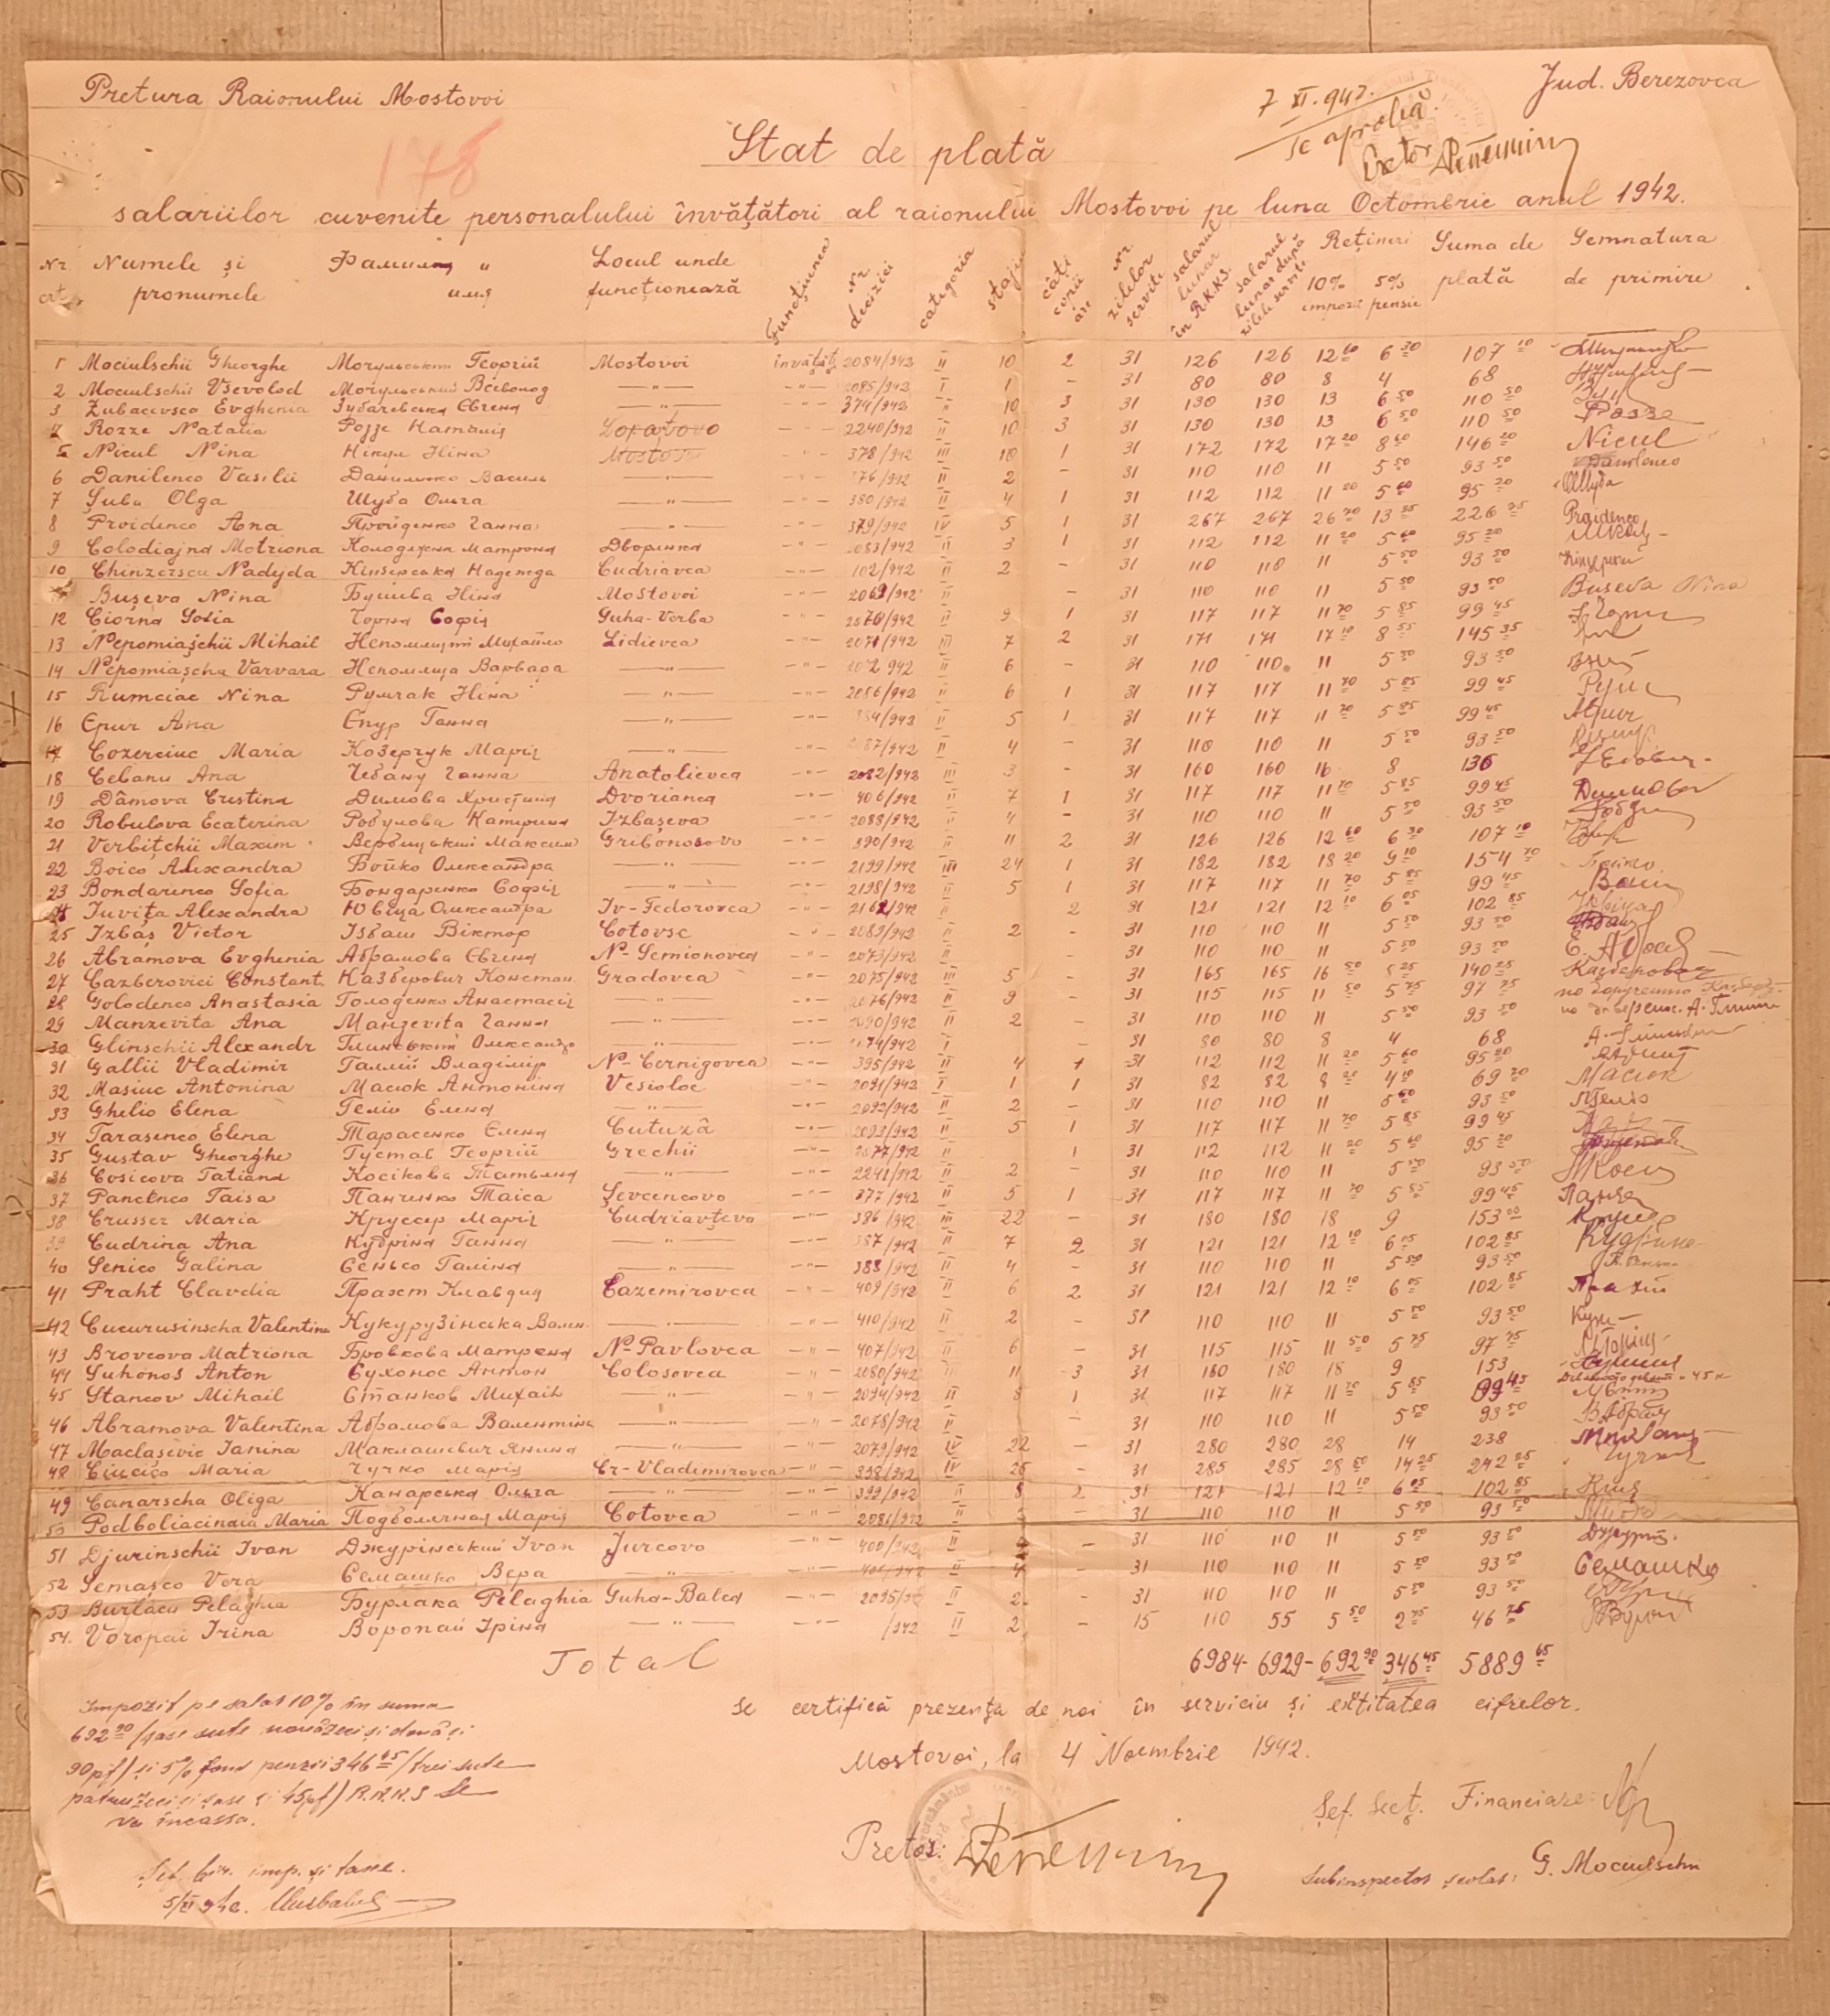 Pretura Raionului Mostovoi
Jud. Berezovca
7 XI. 942.
se aprobă
178
Stat de plată
salariilor cuvenite personalului învățători al raionului Mostovoi pe luna Octombrie anul 1942.
Nr. crt. Numele și pronumele Фамилия и имя Locul unde funcționează Funcțiunea Nr. deciziei categoria stajiu câți copii are Nr. zilelor servite salarul lunar în R.K.K.S. salarul lunar după zilele servite Rețineri 10% impozit 5% pensie Suma de plată Semnatura de primire
1 Mociulschii Gheorghe Мочульський Георгій Mostovoi învățăt. 2084/942 II 10 2 31 126 126 12 60 6 30 107 10
2 Mociulschii Vsevolod Мочульський Всеволод —"— -"- 2085/942 I 1 - 31 80 80 8 4 68
3 Zubacevsca Evghenia Зубачевська Євгена —"— -"- 374/942 II 10 3 31 130 130 13 6 50 110 50
4 Rozze Natalia Розже Наталія -"- 2240/942 II 10 3 31 130 130 13 6 50 110 50
5 Nicul Nina Нікул Ніна Mostovoi -"- 378/942 III 10 1 31 172 172 17 20 8 60 146 20 Nicul
6 Danilenco Vasilii Даниленко Василь —"— -"- 376/942 II 2 - 31 110 110 11 5 50 93 50 Danilenco
7 Șuba Olga Шуба Ольга —"— -"- 380/942 II 4 1 31 112 112 11 20 5 60 95 20 ОШуба
8 Proidenco Ana Пройденко Ганна —"— -"- 379/942 IV 5 1 31 267 267 26 70 13 35 226 95 Proidenco
9 Colodiajna Motriona Колодяжна Матрона Дворянка -"- 2083/942 II 3 1 31 112 112 11 20 5 60 95 20
10 Chinzersca Nadejda Кінзерська Надежда Cudriavca -"- 102/942 II 2 - 31 110 110 11 5 50 93 50
Bușeva Nina Бушева Ніна Mostovoi -"- 2069/942 II - 31 110 110 11 5 50 93 50 Bușeva Nina
12 Ciorna Sofia Чорна Софія Suha-Verba -"- 2070/942 II 9 1 31 117 117 11 70 5 85 99 45
13 Nepomiașchii Mihail Непомлящий Михайло Lidievca -"- 2071/942 III 7 2 31 171 171 17 10 8 55 145 35
14 Nepomiașcha Varvara Непомляща Варвара —"— -"- 2072/942 II 6 - 31 110 110 11 5 50 93 50
15 Rumciac Nina Румчак Ніна —"— -"- 2086/942 II 6 1 31 117 117 11 70 5 85 99 45
16 Epur Ana Єпур Ганна —"— -"- 384/942 II 5 1 31 117 117 11 70 5 85 99 45
17 Cozerciuc Maria Козерчук Марія —"— -"- 2087/942 II 4 - 31 110 110 11 5 50 93 50
18 Cebanu Ana Чебану Ганна Anatolievca -"- 2082/942 III 3 - 31 160 160 16 8 136
19 Dâmova Cristina Димова Христина Dvorianca -"- 406/942 II 7 1 31 117 117 11 70 5 85 99 45
20 Robulova Ecaterina Робулова Катерина Izbașeva -"- 2088/942 II 4 - 31 110 110 11 5 50 93 50
21 Verbițchii Maxim Вербицький Максим Gribonosovo -"- 390/942 II 11 2 31 126 126 12 60 6 30 107 10
22 Boico Alexandra Бойко Олександра —"— -"- 2199/942 III 24 1 31 182 182 18 20 9 10 154 70
23 Bondarenco Sofia Бондаренко Софія —"— -"- 2198/942 II 5 1 31 117 117 11 70 5 85 99 45
24 Iuvița Alexandra Ювіца Олександра Iv-Fedorovca -"- 2162/942 II 2 31 121 121 12 10 6 05 102 85
25 Izbaș Victor Ізбаш Віктор Cotovsc -"- 2089/942 II 2 - 31 110 110 11 5 50 93 50
26 Abramova Evghenia Абрамова Євгена No-Semionovca -"- 2073/942 II - 31 110 110 11 5 50 93 50
27 Cazberovici Constant. Казберович Констан. Gradovca -"- 2075/942 III 5 - 31 165 165 16 50 8 25 140 25
28 Golodenco Anastasia Голоденко Анастасія —"— -"- 2076/942 II 9 - 31 115 115 11 50 5 75 97 75
29 Manzevita Ana Манзеvita Ганна —"— -"- 2090/942 II 2 - 31 110 110 11 5 50 93 50
30 Glinschii Alexandr Глинський Олександр —"— -"- 2074/942 I - 31 80 80 8 4 68
31 Gallii Vladimir Галлий Владімір No-Cernigovca -"- 395/942 II 4 1 31 112 112 11 20 5 60 95 20
32 Masiuc Antonina Масюк Антоніна Vesioloe -"- 2091/942 I 1 1 31 82 82 8 20 4 10 69 70 Масюк
33 Ghelio Elena Геліо Елена —"— -"- 2092/942 II 2 - 31 110 110 11 5 50 93 50
34 Tarasenco Elena Тарасенко Єлена Cutuză -"- 2093/942 II 5 1 31 117 117 11 70 5 85 99 45
35 Gustav Gheorghe Густав Георгій Grechii -"- 2077/942 II 1 31 112 112 11 20 5 60 95 20
36 Cosicova Tatiana Косікова Татьяна —"— -"- 2241/942 II 2 - 31 110 110 11 5 50 93 50
37 Pancenco Taisa Панченко Таіса Șevcencovo -"- 377/942 II 5 1 31 117 117 11 70 5 85 99 45
38 Crusser Maria Круссер Марія Cudriavțevo -"- 386/942 III 22 - 31 180 180 18 9 153 00
39 Cudrina Ana Кудріна Ганна —"— -"- 387/942 II 7 2 31 121 121 12 10 6 05 102 85
40 Senico Galina Сенько Галіна —"— -"- 388/942 II 4 - 31 110 110 11 5 50 93 50
41 Praht Clavdia Прахт Клавдия Cazemirovca -"- 409/942 II 6 2 31 121 121 12 10 6 05 102 85
42 Cucurusinscha Valentina Кукурузінська Вален. —"— -"- 410/942 II 2 - 31 110 110 11 5 50 93 50
43 Brovcova Matriona Бровкова Матрена No-Pavlovca -"- 407/942 II 6 - 31 115 115 11 50 5 75 97 75
44 Suhonos Anton Сухонос Антон Colosovca -"- 2080/942 III 11 3 31 180 180 18 9 153
45 Stancov Mihail Станков Михаіл —"— -"- 2094/942 II 8 1 31 117 117 11 70 5 85 99 45
46 Abramova Valentina Абрамова Валентина —"— -"- 2078/942 II - 31 110 110 11 5 50 93 50
47 Maclașevic Ianina Маклашевич Янина —"— -"- 2079/942 IV 22 - 31 280 280 28 14 238
48 Ciucico Maria Чучко Марія Cr-Vladimirovca -"- 398/942 IV 25 - 31 285 285 28 50 14 25 242 25
49 Canarscha Oliga Канарська Ольга —"— -"- 399/942 II 8 2 31 121 121 12 10 6 05 102 85
50 Podboliacinaia Maria Подболячная Марія Cotovca 2081/942 II - 31 110 110 11 5 50 93 50
51 Djurinschii Ivan Джурінський Іvan Jurcovo -"- 400/942 II - 31 110 110 11 5 50 93 50
52 Semașco Vera Семашко Вера —"— -"- II 4 - 31 110 110 11 5 50 93 50 Семашко
53 Burlaca Pelaghia Бурлака Pelaghia Suha-Balca -"- 2095/942 II 2 - 31 110 110 11 5 50 93 50
54. Voropai Irina Воропай Іріна —"— -"- /942 II 2 - 15 110 55 5 50 2 75 46 75
Total 6984- 6929- 692 90 346 45 5889 65
Se certifică prezența de noi în serviciu și extitatea cifrelor.
Mostovoi, la 4 Noembrie 1942.
Impozit pe salar 10% în suma
692 90 /șase sute nouăzeci și două și
90 pf/ și 5% fond penzii 346 45 /trei sute
patruzeci și șase și 45 pf/ R.K.K.S se
va încassa.
Șef. bir. imp. și taxe.
5/XI 942.
Pretor:
Șef. Secț. Financiare:
Subinspector școlar: G. Mociulschi